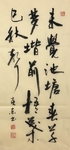 未覺池塘春草
夢階前梧葉
已秋聲